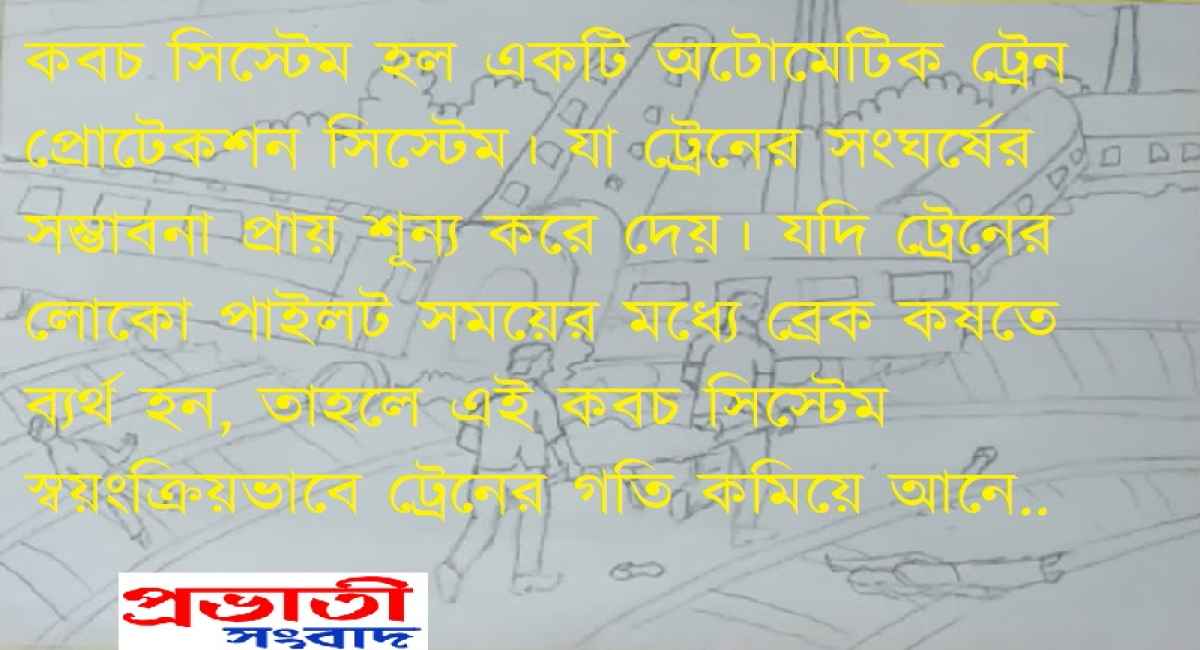 কবচ সিস্টেম হল একটি অটোমেটিক ট্রেন
প্রোটেকশন সিস্টেম। যা ট্রেনের সংঘর্ষের
সম্ভাবনা প্রায় শূন্য করে দেয়। যদি ট্রেনের
লোকো পাইলট সময়ের মধ্যে ব্রেক কষতে
ব্যর্থ হন, তাহলে এই কবচ সিস্টেম
স্বয়ংক্রিয়ভাবে ট্রেনের গতি কমিয়ে আনে..
প্রভাতী
সংবাদ